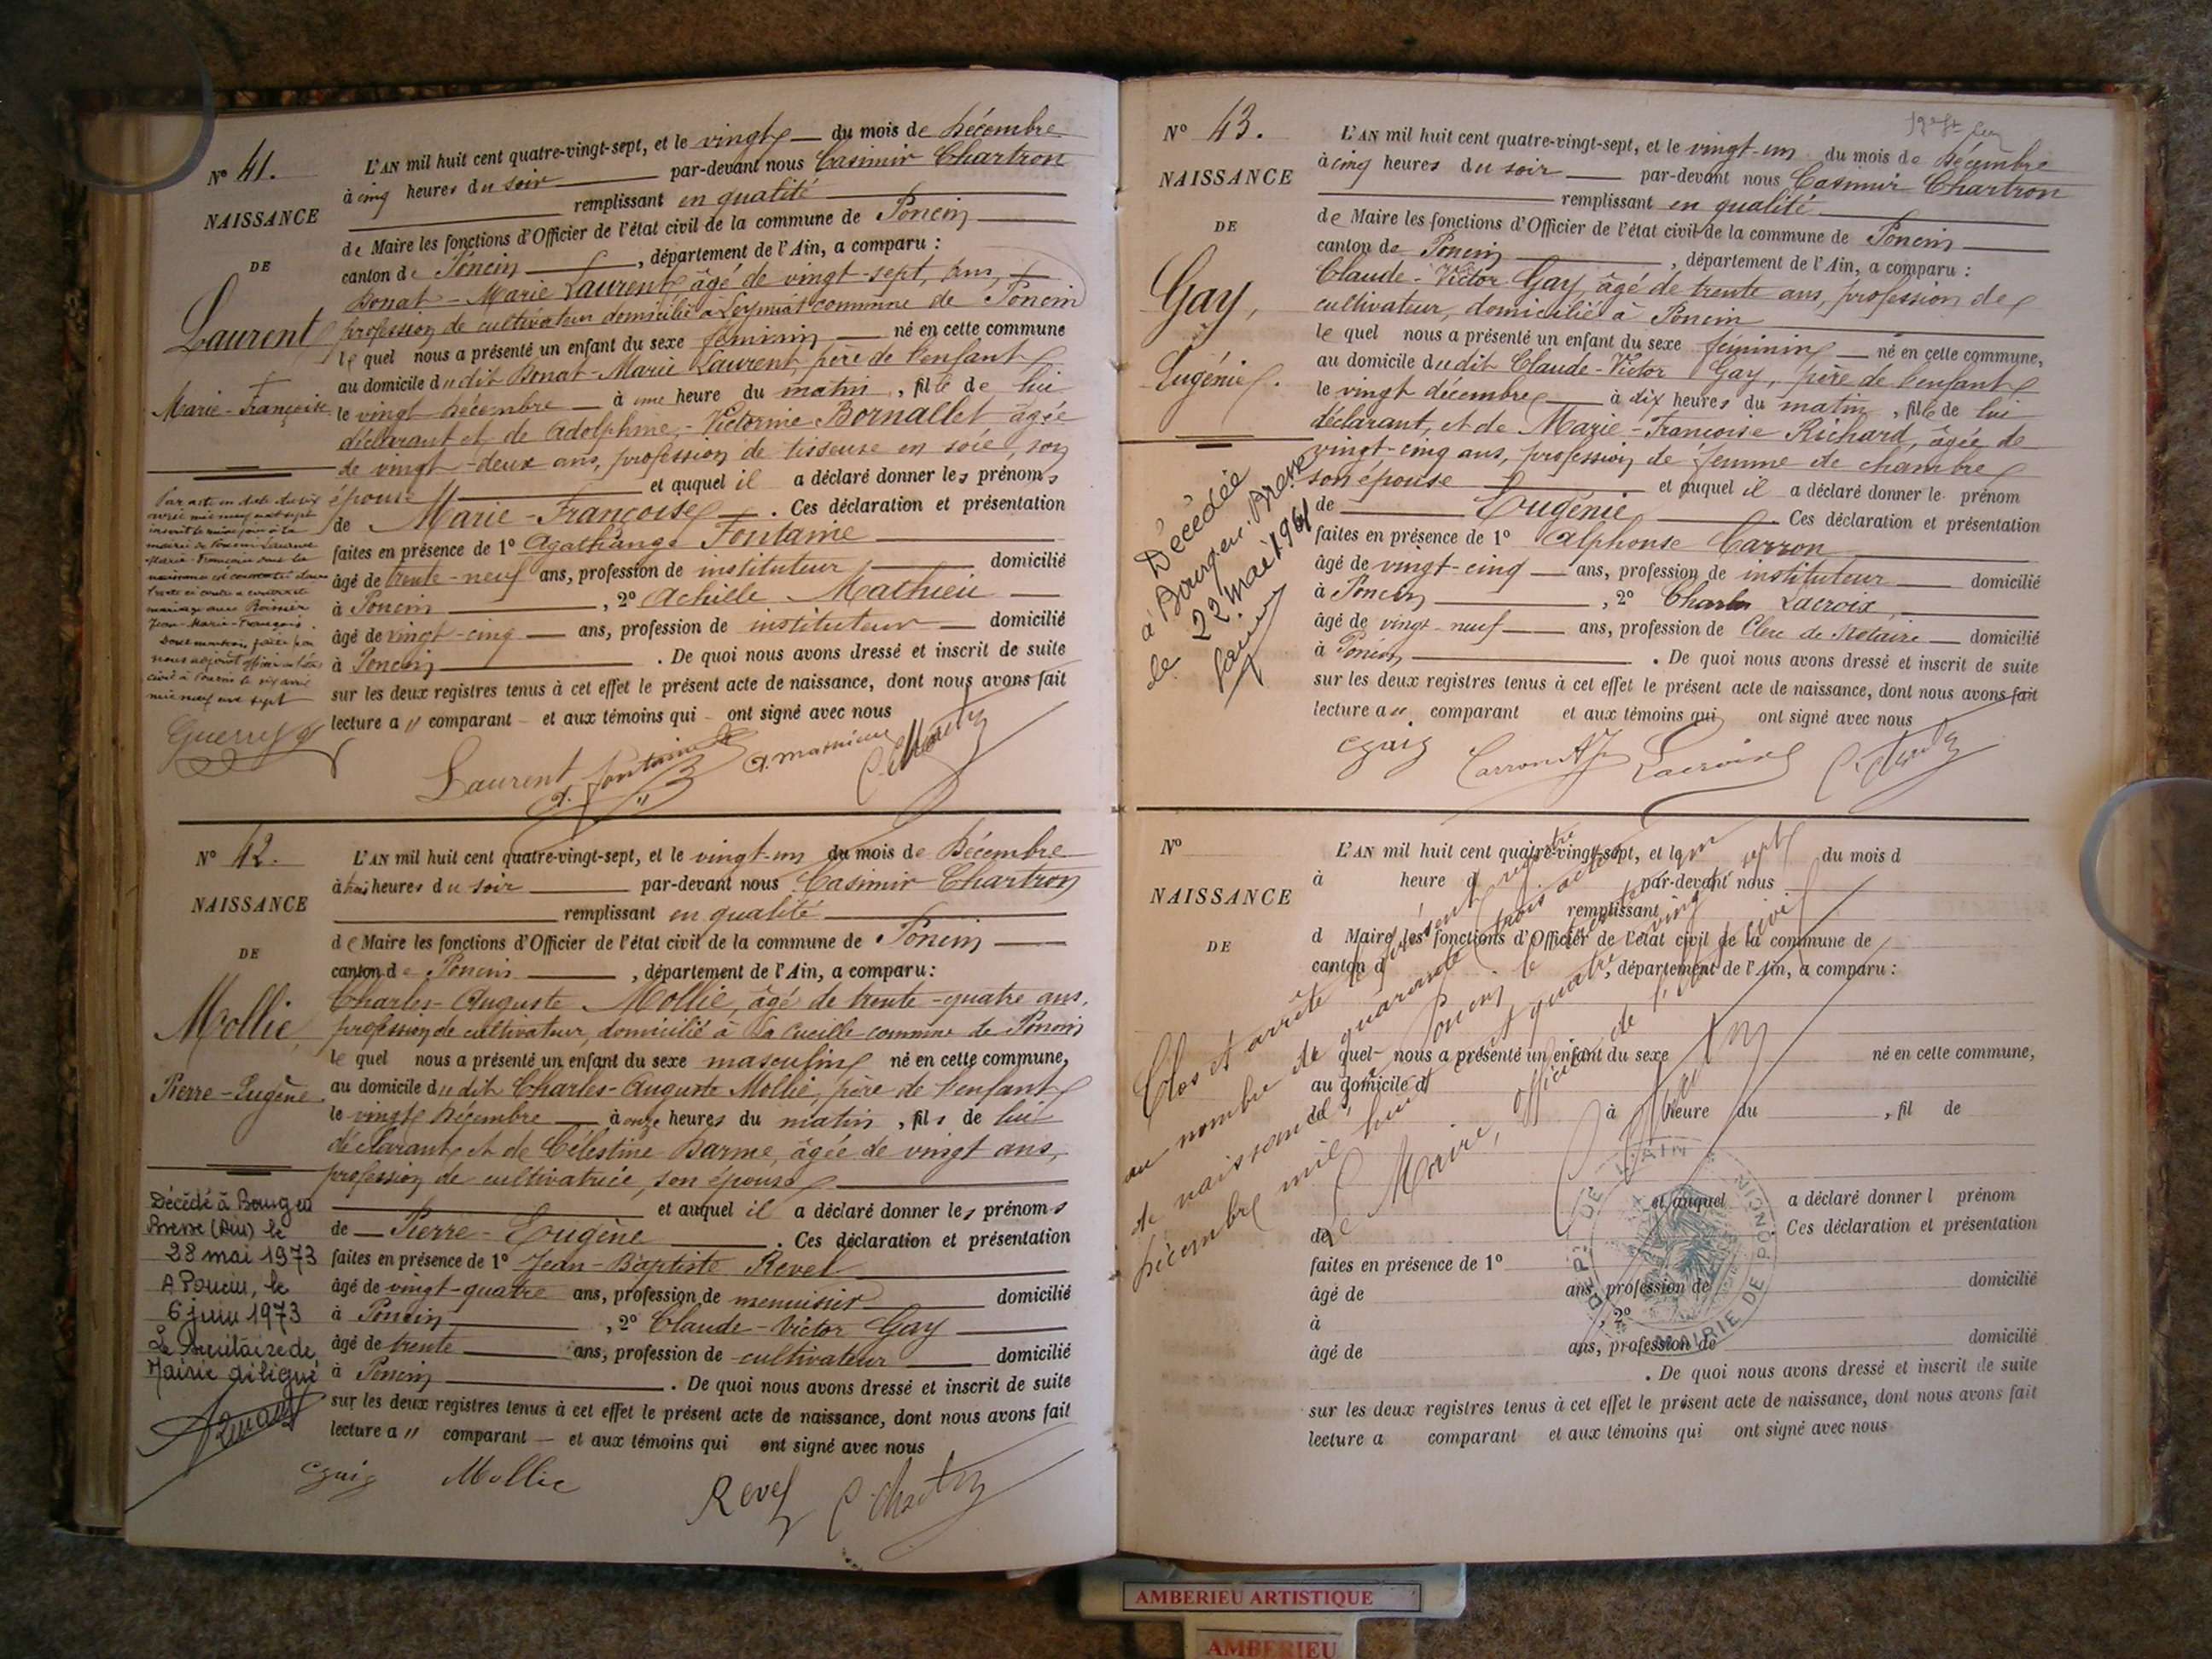 N° 41.
NAISSANCE
DE
Laurent
Marie-Françoise
L'AN mil huit cent quatre-vingt-sept, et le vingt du mois de Décembre
à cinq heures du soir par-devant nous Casimir Chartron
remplissant en qualité
de Maire les fonctions d'Officier de l'état civil de la commune de Poncin
canton de Poncin, département de l'Ain, a comparu :
Donat-Marie Laurent âgé de vingt-sept ans,
profession de cultivateur domicilié à Leymiat commune de Poncin
lequel nous a présenté un enfant du sexe féminin né en cette commune
au domicile dudit Donat-Marie Laurent, père de l'enfant
le vingt Décembre à une heure du matin, fille de lui
déclarant et de Adolphine-Victorine Bornallet âgée
de vingt-deux ans, profession de tisseuse en soie, son
épouse et auquel il a déclaré donner les prénoms
de Marie-Françoise. Ces déclaration et présentation
faites en présence de 1° Agathange Fontaine
âgé de trente-neuf ans, profession de instituteur domicilié
à Poncin, 2° Achille Mathieu
âgé de vingt-cinq ans, profession de instituteur domicilié
à Poncin. De quoi nous avons dressé et inscrit de suite
sur les deux registres tenus à cet effet le présent acte de naissance, dont nous avons fait
lecture au comparant et aux témoins qui ont signé avec nous
Par acte en date du six
avril mil neuf cent sept
inscrit le même jour à la
mairie de Poncin Laurent
Marie-Françoise dont la
naissance est constatée
mariage avec
Jean-Marie-François.
civil à Poncin le six avril
mil neuf cent sept
Guerry
Laurent A. Fontaine A. Mathieu C. Chartron
N° 42.
NAISSANCE
DE
Mollie,
Pierre-Eugène.
L'AN mil huit cent quatre-vingt-sept, et le vingt-un du mois de Décembre
à trois heures du soir par-devant nous Casimir Chartron
remplissant en qualité
de Maire les fonctions d'Officier de l'état civil de la commune de Poncin
canton de Poncin, département de l'Ain, a comparu :
Charles-Auguste Mollie, âgé de trente-quatre ans,
profession de cultivateur, domicilié à La Cueille commune de Poncin
lequel nous a présenté un enfant du sexe masculin né en cette commune,
au domicile dudit Charles-Auguste Mollie, père de l'enfant
le vingt Décembre à onze heures du matin, fils de lui
déclarant et de Célestine Barme, âgée de vingt ans,
profession de cultivatrice, son épouse
et auquel il a déclaré donner les prénoms
de Pierre-Eugène. Ces déclaration et présentation
faites en présence de 1° Jean-Baptiste Revel
âgé de vingt-quatre ans, profession de menuisier domicilié
à Poncin, 2° Claude-Victor Gay
âgé de trente ans, profession de cultivateur domicilié
à Poncin. De quoi nous avons dressé et inscrit de suite
sur les deux registres tenus à cet effet le présent acte de naissance, dont nous avons fait
lecture au comparant et aux témoins qui ont signé avec nous
Décédé à Bourg en
Bresse (Ain) le
28 mai 1973
A Poncin, le
6 juin 1973
Le Secrétaire de
Mairie délégué
Mollie Revel C. Chartron
N° 43.
NAISSANCE
DE
Gay,
Eugénie.
L'AN mil huit cent quatre-vingt-sept, et le vingt-un du mois de Décembre
à cinq heures du soir par-devant nous Casimir Chartron
remplissant en qualité
de Maire les fonctions d'Officier de l'état civil de la commune de Poncin
canton de Poncin, département de l'Ain, a comparu :
Claude-Victor Gay, âgé de trente ans, profession de
cultivateur, domicilié à Poncin
lequel nous a présenté un enfant du sexe féminin né en cette commune,
au domicile dudit Claude-Victor Gay, père de l'enfant
le vingt décembre à dix heures du matin, fille de lui
déclarant, et de Marie-Françoise Richard, âgée de
vingt-cinq ans, profession de femme de chambre
son épouse et auquel il a déclaré donner le prénom
de Eugénie Ces déclaration et présentation
faites en présence de 1° Alphonse Carron
âgé de vingt-cinq ans, profession de instituteur domicilié
à Poncin, 2° Charles Lacroix
âgé de vingt-neuf ans, profession de Clerc de Notaire domicilié
à Poncin. De quoi nous avons dressé et inscrit de suite
sur les deux registres tenus à cet effet le présent acte de naissance, dont nous avons fait
lecture au comparant et aux témoins qui ont signé avec nous
Décédée
à Bourg en Bresse
le 22 mai 1961
Carron Lacroix C. Chartron
N°
NAISSANCE
DE
L'AN mil huit cent quatre-vingt-sept, et le du mois d
à heure d par-devant nous
remplissant
d Maire les fonctions d'Officier de l'état civil de la commune de
canton d, département de l'Ain, a comparu :
quel nous a présenté un enfant du sexe né en cette commune,
au domicile d
à heure du, fil de
et auquel a déclaré donner l prénom
de Ces déclaration et présentation
faites en présence de 1°
âgé de ans, profession de domicilié
à, 2°
âgé de ans, profession de domicilié
. De quoi nous avons dressé et inscrit de suite
sur les deux registres tenus à cet effet le présent acte de naissance, dont nous avons fait
lecture a comparant et aux témoins qui ont signé avec nous
Clos et arrêté le présent registre
au nombre de quarante trois actes
de naissance Poncin, le
décembre mil huit cent quatre vingt sept
Le Maire, officier de l'état civil
MAIRIE DE PONCIN
DEPt DE L'AIN
AMBERIEU ARTISTIQUE
AMBERIEU